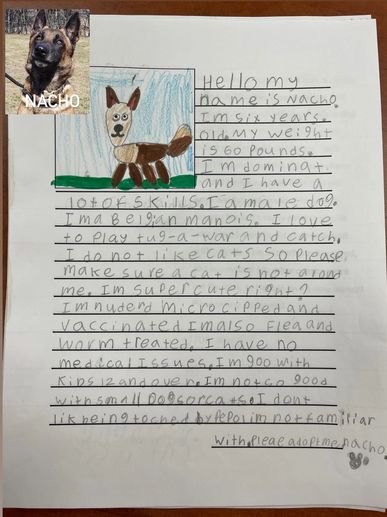 NACHO
Hello my
name is Nacho.
I'm six years.
old. My weight
is 60 Pounds.
I'm dominat.
and I have a
lot of skills. I'a male dog.
I'm a Belgian manois. I love
to Play tug-a-war and catch.
I do not like cats so Please
make sure a cat is not arond
me. I'm super cute right?
I'm nuderd Microcipped and
vaccinated I'm also Flea and
worm treated. I have no
medical Issues. I'm goo with
Kins 12 and over. I'm not co good
with small Dogs or cats. I dont
lik being toched by PePol im not familiar
with. Pleae adopt me nacho.